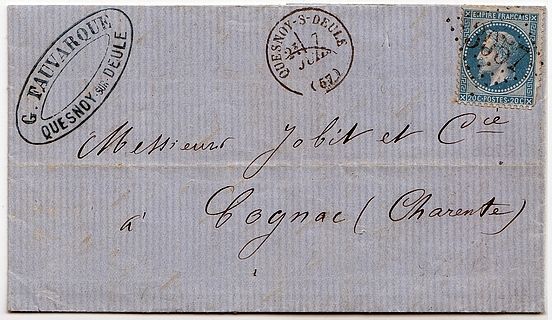 G. FAUVARQUE
QUESNOY SUR DEULE
QUESNOY-S-DEULE
7
JUIL
(57)
EMPIRE FRANÇAIS
20C POSTES 20C
Messieurs Jobit et Cie
à Cognac (Charente)